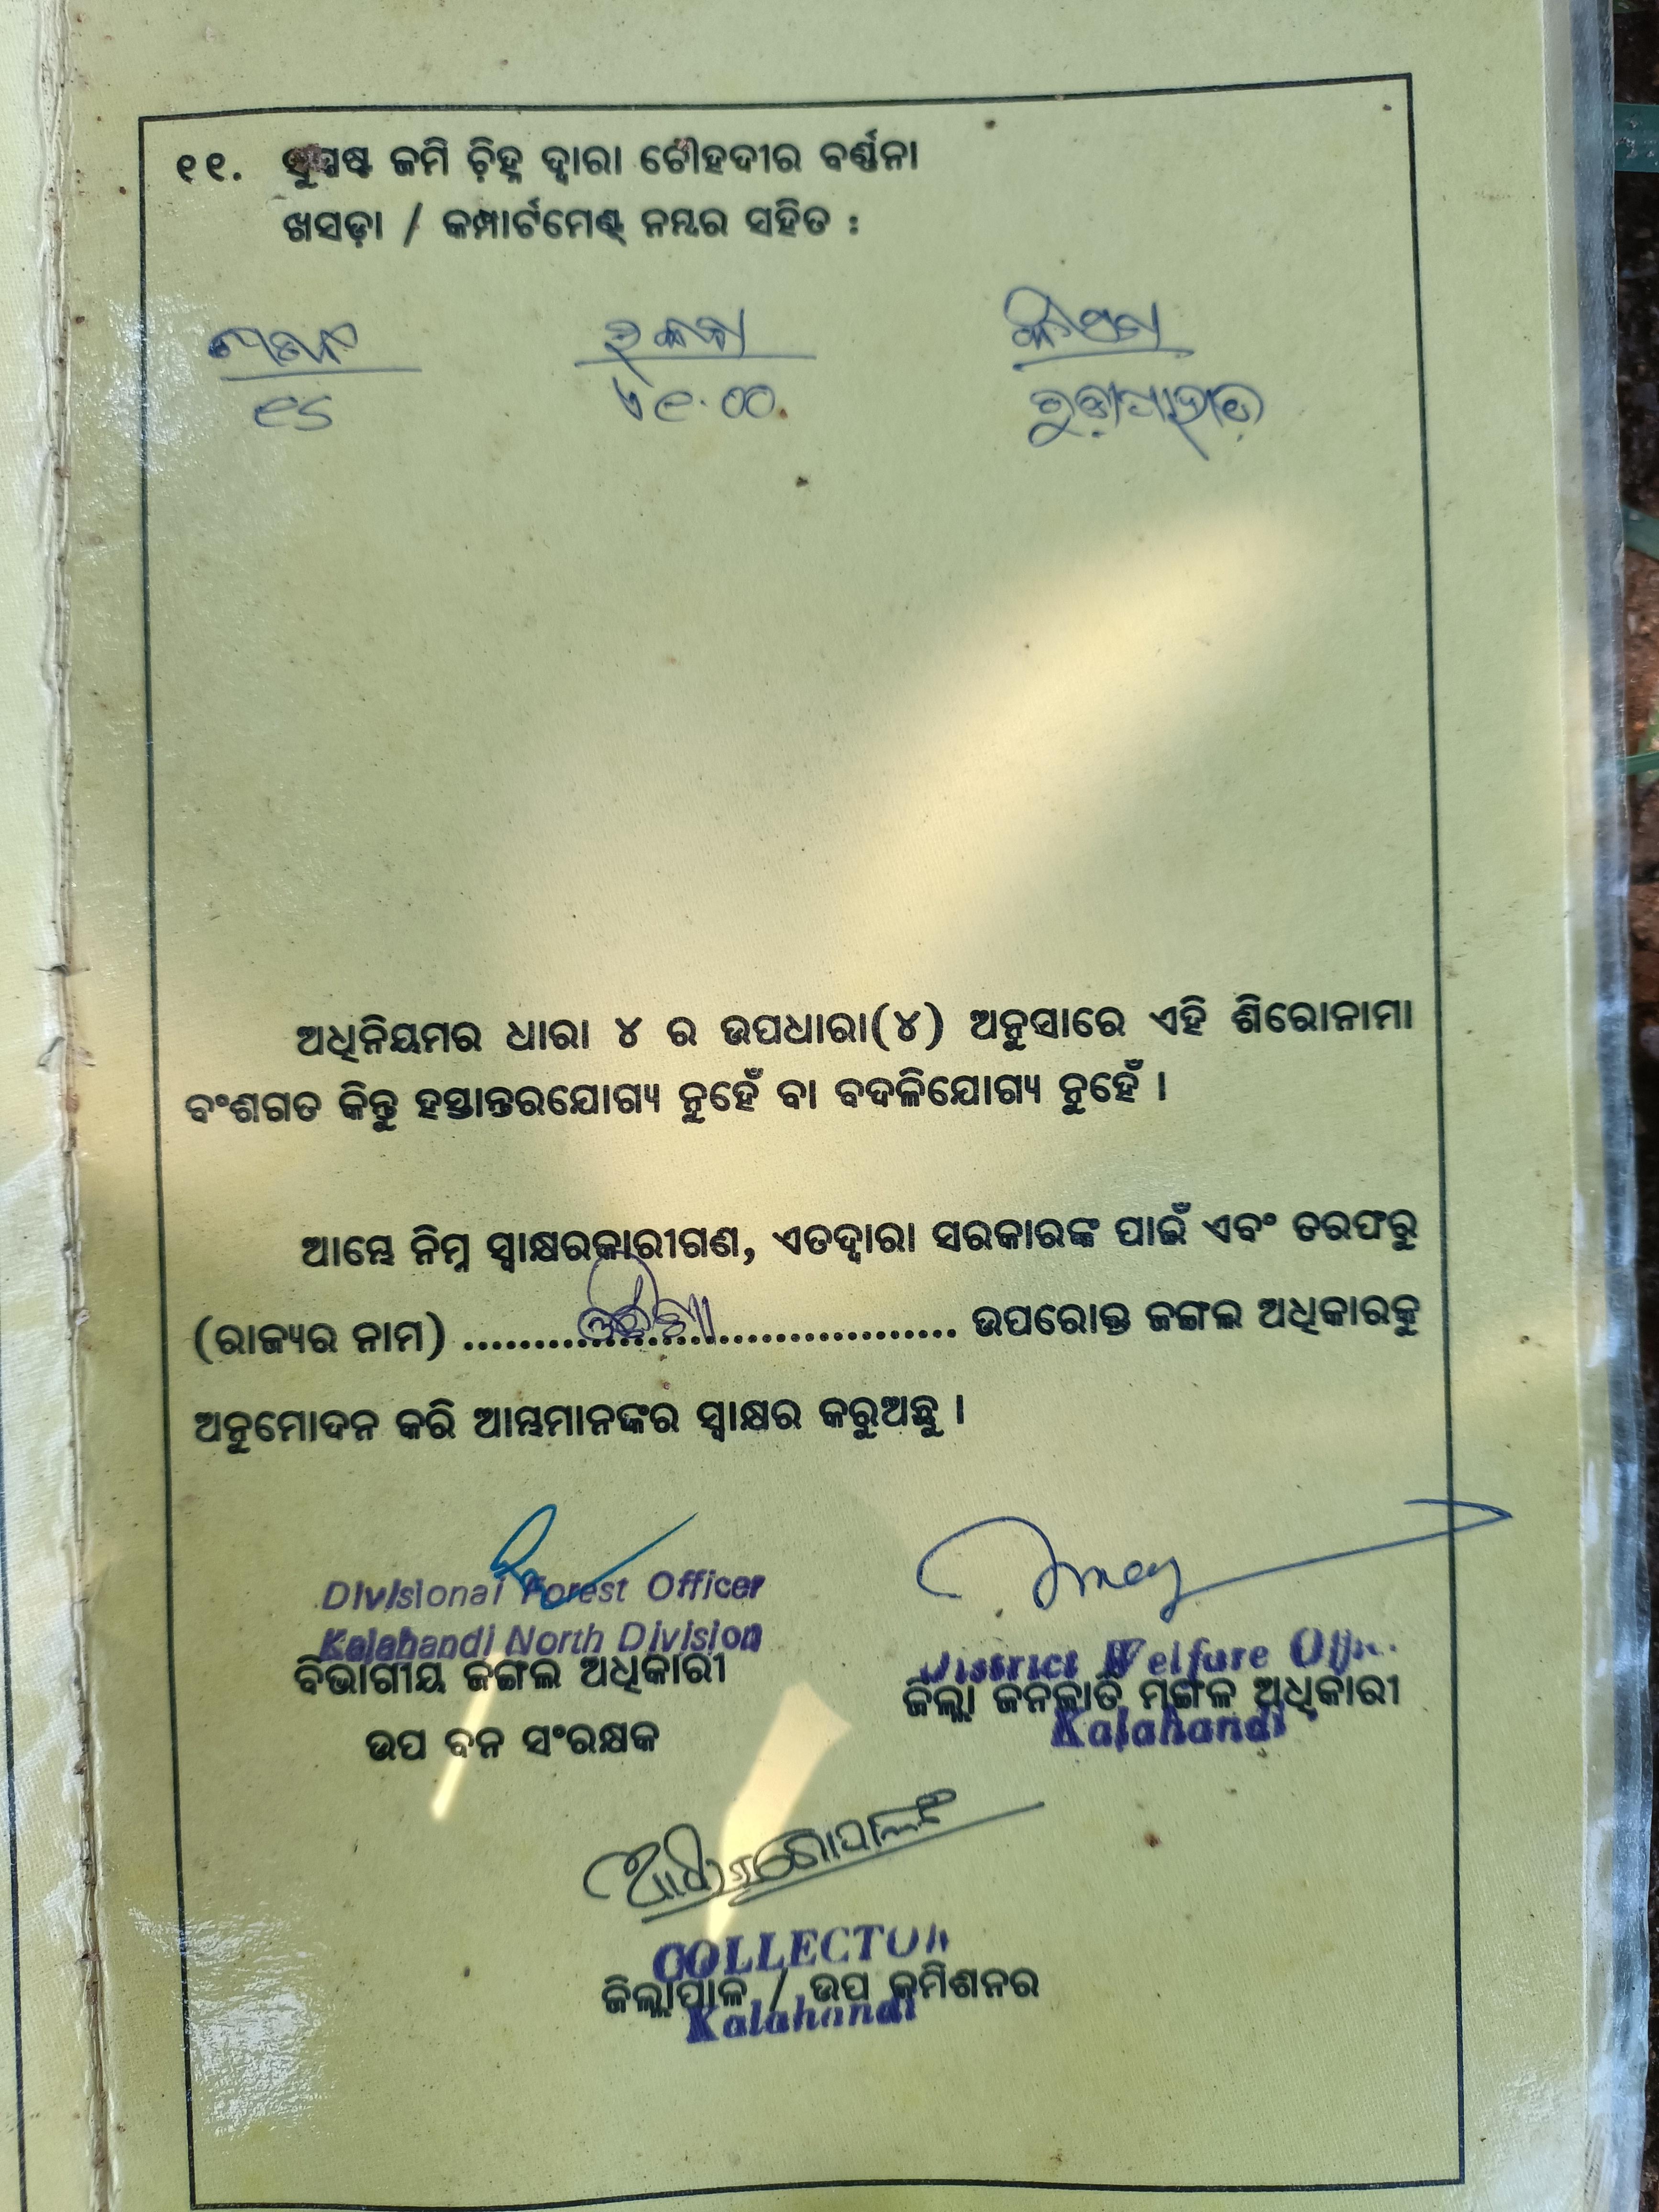 ୧୧. ସୁସ୍ପଷ୍ଟ ଜମି ଚ଼ିହ୍ନ ଦ୍ୱାରା ଚୌହଦୀର ବର୍ଣ୍ଣନା
ଖସଡ଼ା / କମ୍ପାର୍ଟମେଣ୍ଟ୍ ନମ୍ବର ସହିତ :
ରକବା କିସମ
୧୫ ଏ ୧.୦୦
ଅଧିନିୟମର ଧାରା ୪ ର ଉପଧାରା(୪) ଅନୁସାରେ ଏହି ଶିରୋନାମା
ବଂଶଗତ କିନ୍ତୁ ହସ୍ତାନ୍ତରଯୋଗ୍ୟ ନୁହେଁ ବା ବଦଳିଯୋଗ୍ୟ ନୁହେଁ ।
ଆମ୍ଭେ ନିମ୍ନ ସ୍ୱାକ୍ଷରକାରୀଗଣ, ଏତଦ୍ୱାରା ସରକାରଙ୍କ ପାଇଁ ଏବଂ ତରଫରୁ
(ରାଜ୍ୟର ନାମ) ଓଡ଼ିଶା ଉପରୋକ୍ତ ଜଙ୍ଗଲ ଅଧିକାରକୁ
ଅନୁମୋଦନ କରି ଆମ୍ଭମାନଙ୍କର ସ୍ୱାକ୍ଷର କରୁଅଛୁ ।
Divisional Forest Officer
Kalahandi North Division
ବିଭାଗୀୟ ଜଙ୍ଗଲ ଅଧିକାରୀ
ଉପ ବନ ସଂରକ୍ଷକ
District Welfare
ଜିଲ୍ଲା ଜନଜାତି ମଙ୍ଗଳ ଅଧିକାରୀ
Kalahandi
COLLECTOR
ଜିଲ୍ଲାପାଳ / ଉପ କମିଶନର
Kalahandi